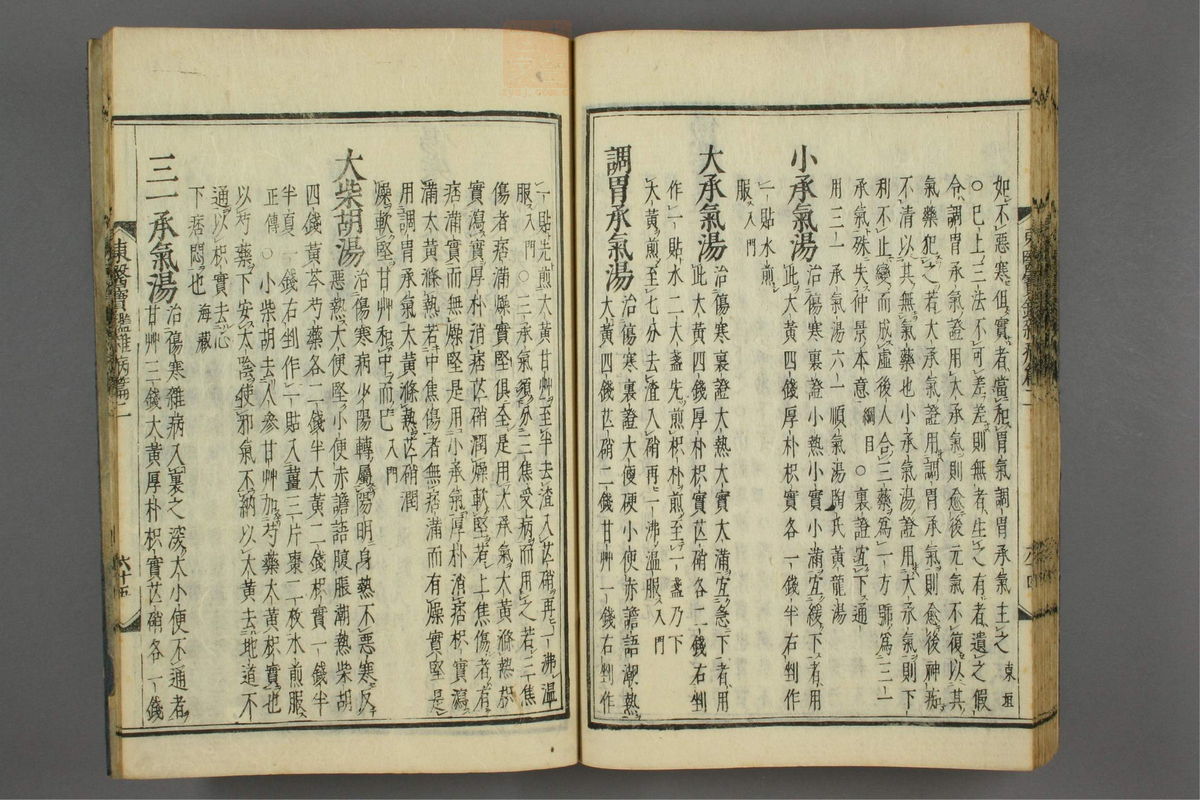 如不惡寒但實者當和胃氣調胃承氣主之 東垣
○已上三法不可差差則無者生之有者遺之假
令調胃承氣證用大承氣則愈後元氣不復以其
氣藥犯之若大承氣證用調胃承氣則愈後神痴
不清以其無氣藥也小承氣湯證用大承氣則下
利不止變而成虛後人合三藥爲一方號爲三一
承氣殊失仲景本意 綱目 ○裏證宜下通
用三一承氣湯六一順氣湯陶氏黃龍湯
小承氣湯 治傷寒裏證小熱小實小滿宜緩下者用
此大黃四錢厚朴枳實各一錢半右剉作
一貼水煎
服 入門
大承氣湯 治傷寒裏證大熱大實大滿宜急下者用
此大黃四錢厚朴枳實芒硝各二錢右剉
作一貼水二大盞先煎枳朴煎至一盞乃下
大黃煎至七分去渣入硝再一沸溫服 入門
調胃承氣湯 治傷寒裏證大便硬小便赤譫語潮熱
大黃四錢芒硝二錢甘艸一錢右剉作
一貼先煎大黃甘艸至半去渣入芒硝再一沸溫
服 入門 ○三承氣須分三焦受病而用之若三焦
傷者痞滿燥實堅俱全是用大承氣大黃滌熱枳
實瀉實厚朴消痞芒硝潤燥軟堅若上焦傷者有
痞滿實而無燥堅是用小承氣厚朴消痞枳實瀉
滿大黃滌熱若中焦傷者無痞滿而有燥實堅是
用調胃承氣大黃滌熱芒硝潤
燥軟堅甘艸和中而已 入門
大柴胡湯 治傷寒病少陽轉屬陽明身熱不惡寒反
惡熱大便堅小便赤譫語腹脹潮熱柴胡
四錢黃芩芍藥各二錢半大黃二錢枳實一錢半
半夏一錢右剉作一貼入薑三片棗二枚水煎服
正傳 ○小柴胡去人參甘艸加芍藥大黃枳實也
以芍藥下安太陰使邪氣不納以大黃去地道不
通以枳實去心
下痞悶也 海藏
三一承氣湯 治傷寒雜病入裏之深大小便不通者
甘艸三錢大黃厚朴枳實芒硝各一錢
東醫寶鑑雜病篇二
六十五